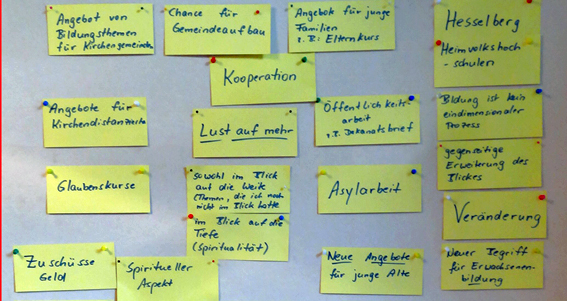 Angebot von
Bildungsthemen
für Kirchengemeinden
Chance für
Gemeindeaufbau
Angebote für junge
Familien
z.B.: Elternkurs
Hesselberg
Heimvolkshoch
-schulen
Kooperation
Angebote für
Kirchendistanzierte
Lust auf mehr
Öffentlichkeits-
arbeit
z.B. Dekanatsbrief
Bildung ist kein
eindimensionaler
Prozess
gegenseitige
Erweiterung des
Blickes
Glaubenskurse
sowohl im Blick
auf die Weite
(Themen, die ich noch
nicht im Blick hatte
im Blick auf die
Tiefe
(Spiritualität)
Asylarbeit
Veränderung
Zuschüsse
Geld
Spiritueller
Aspekt
Neue Angebote
für junge Alte
Neuer Begriff
für Erwachsenen-
bildung